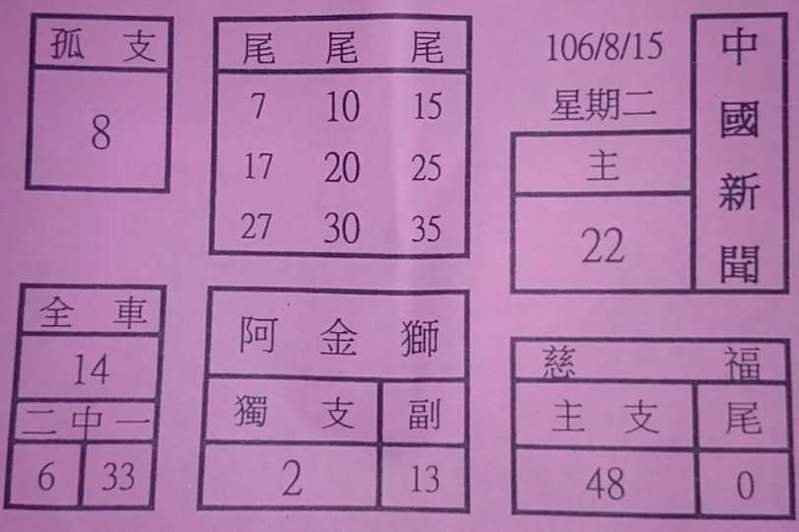 孤 支
8
尾 尾 尾
7 10 15
17 20 25
27 30 35
106/8/15
星期二
主
22
中國新聞
全 車
14
二中一
6 33
阿 金 獅
獨 支 副
2 13
慈 福
主 支 尾
48 0